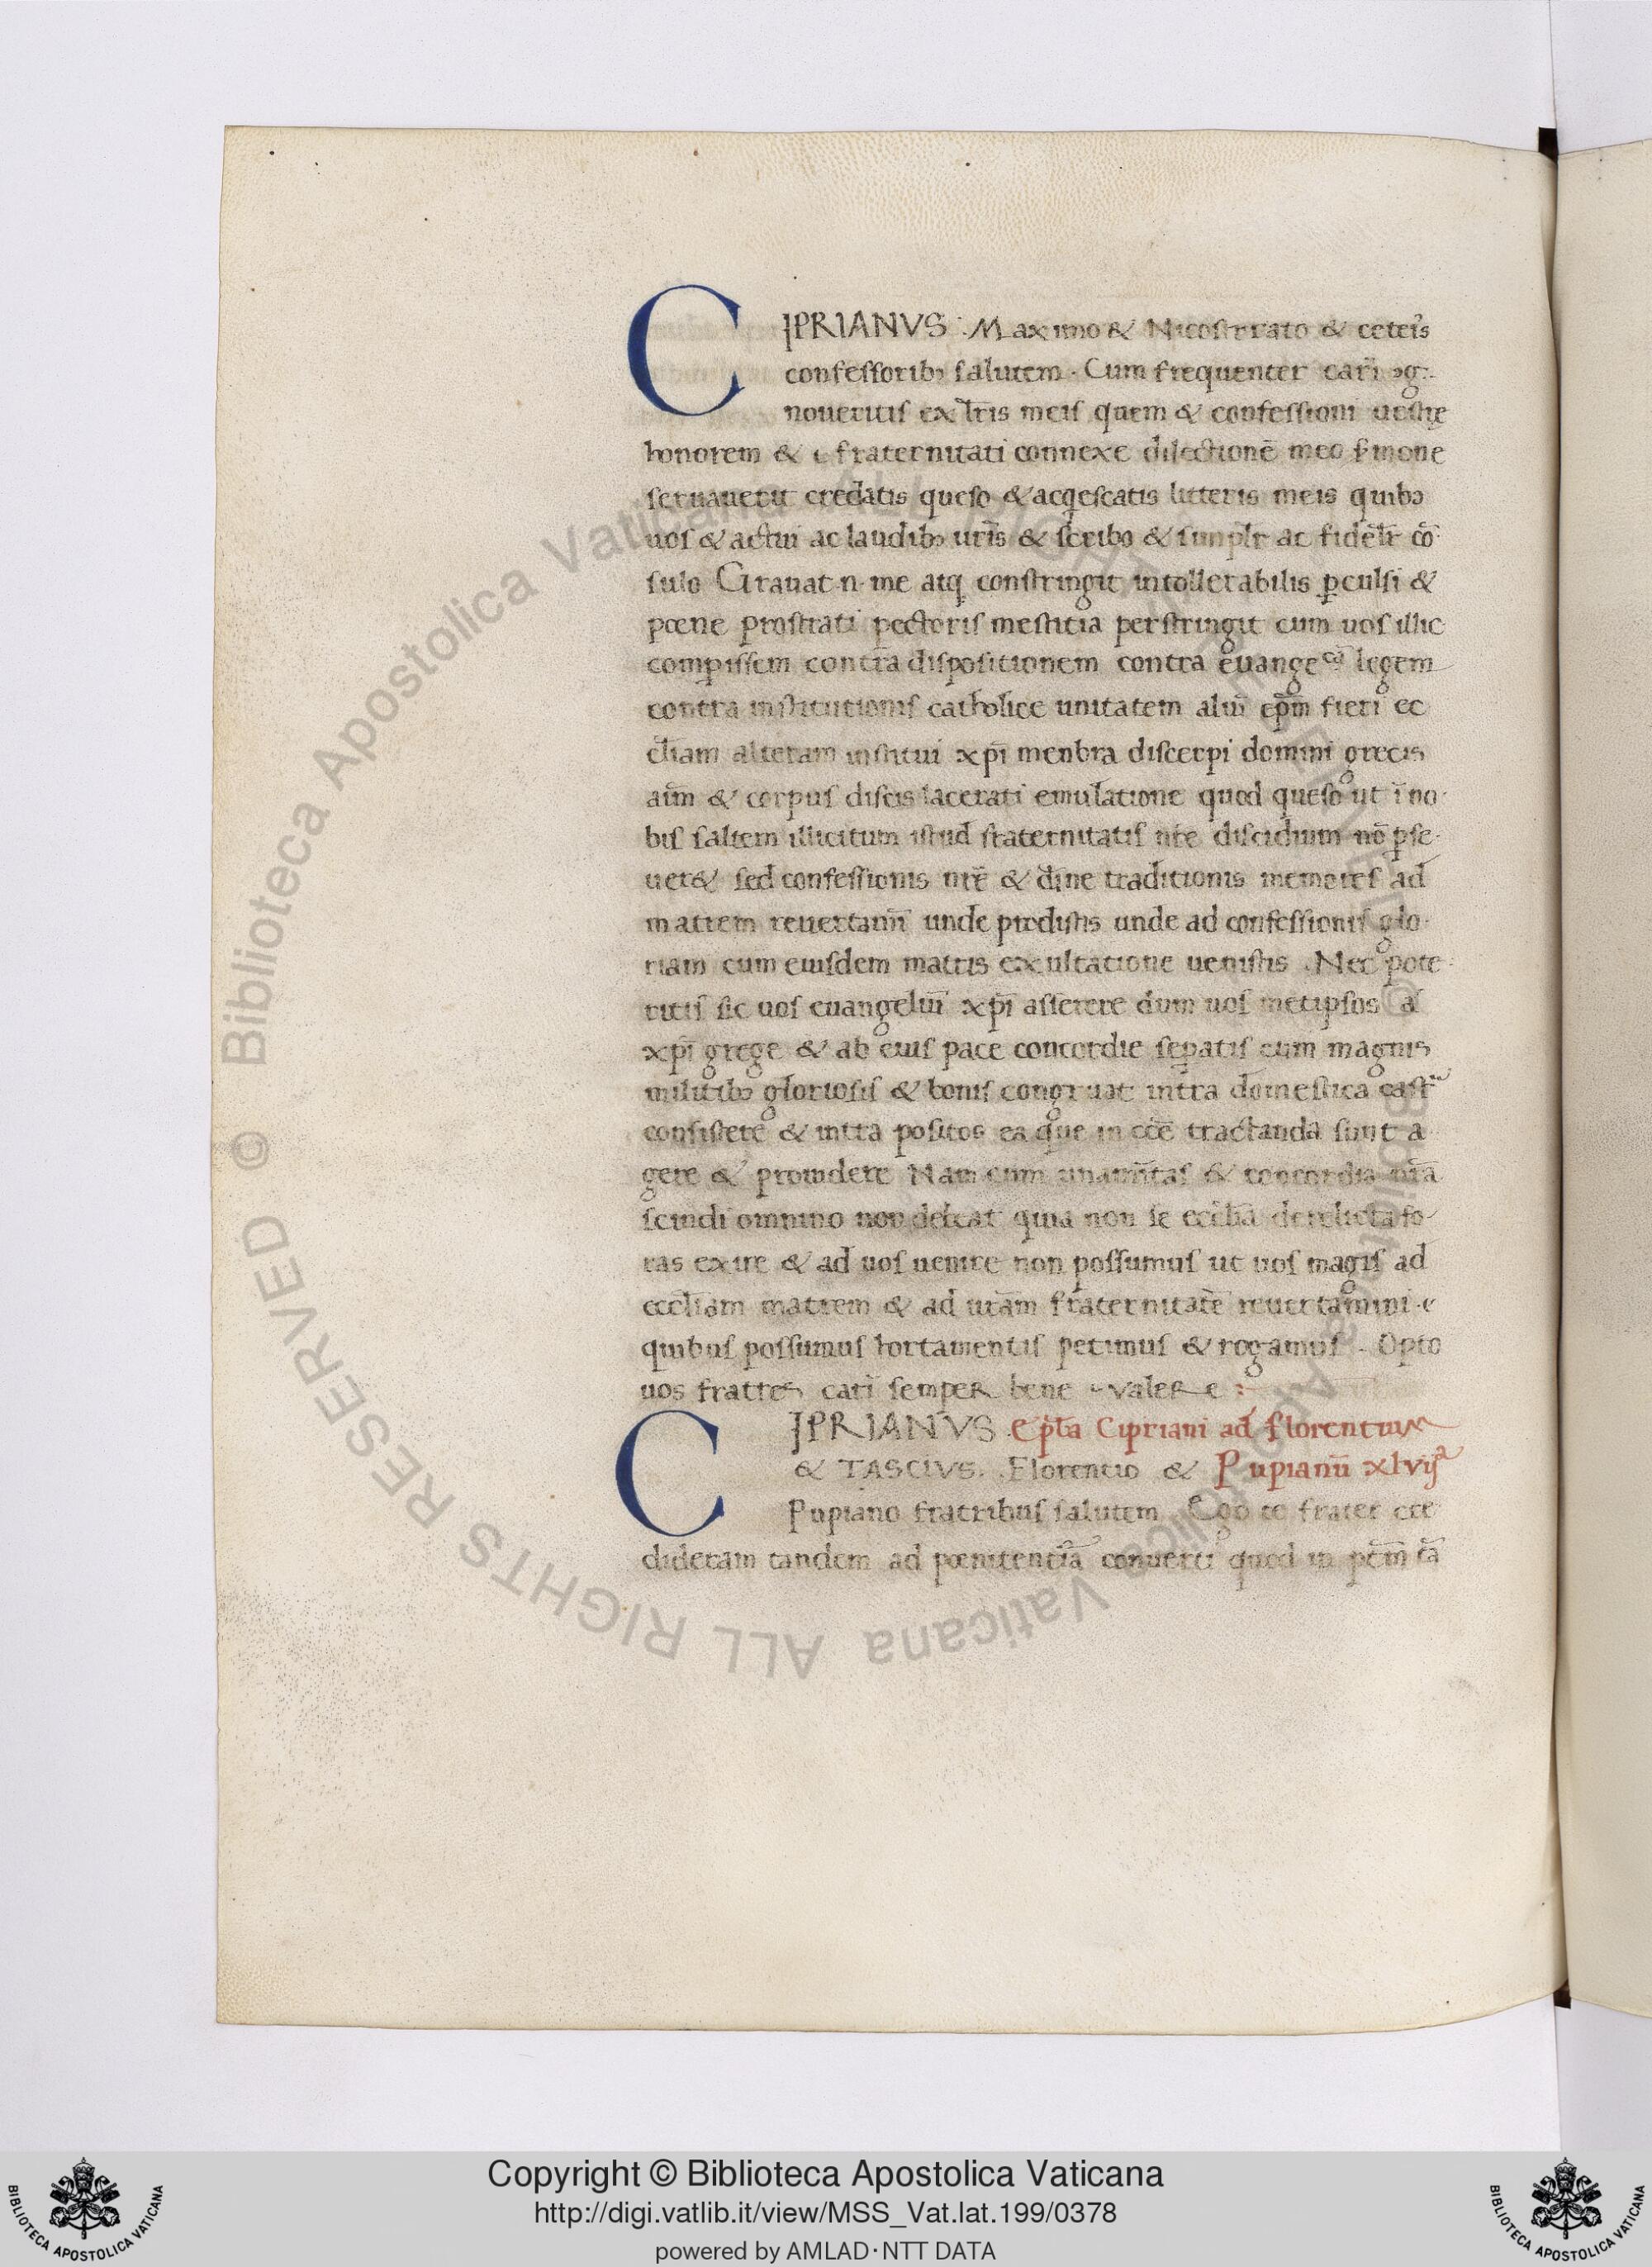 CIPRIANVS Maximo & Nicostrato & ceteris
confessoribꝫ salutem · Cum frequenter cari ꝯg
noveritis ex lr̄is meis quem & confessioni uestrę
honorem & fraternitati connexe dilectionē meo smone
seruauerit credatis queso & acqescatis litteris meis quibꝫ
uos & actui ac laudibꝫ ur̄is & scribo & simplr̄ ac fidelr̄ cō
sulo Grauat · n · me atq constringit intollerabilis ꝑculsi &
poene prostrati pectoris mestitia perstringit cum uos illic
comꝑissem contra dispositionem contra euangeca legem
contra institutionis catholice unitatem aliū ep̄m fieri ec
cl̄iam alteram institui xp̄i menbra discerpi domini grecis
aīm & corpus discis lacerati emulatione quod queso ut ī no
bis saltem illicitum istud fraternitatis nr̄e discidium nō ꝑse
uer& sed confessionis nr̄ē & dīne traditionis memores ad
matrem reuertamī unde prodijstis unde ad confessionis glo
riam cum eiusdem matris exultatione uenistis · Nec pote
ritis sic uos euangeliū xp̄i asserere dum uos metipsos a
xp̄i grege & ab eius pace concordie seꝑatis cum magnis
militibꝫ gloriosis & bonis congruat intra domestica castra
consistere & intra positos ea que in cc̄e tractanda sunt a
gere & prouidere Nam cum unaīmtas & concordia nr̄a
scindi omnino non debeat quia non se eccl̄ia derelicta fo
ras exire & ad uos uenire non possumus ut uos magis ad
eccl̄iam matrem & ad ur̄am fraternitatē reuertamini ·
quibus possumus hortamentis petimus & rogamus · Opto
uos fratres cari semper bene valere :
CIPRIANVS Ep̄la Cipriani ad florentium
& TASCIVS. Florentio & Pupianū xlvijᵃ
Pupiano fratribus salutem Ego te frater cre
dideram tandem ad poenitentiā conuerti quod in
© Biblioteca Apostolica Vaticana ALL RIGHTS RESERVED
Copyright © Biblioteca Apostolica Vaticana
http://digi.vatlib.it/view/MSS_Vat.lat.199/0378
powered by AMLAD·NTT DATA
BIBLIOTECA APOSTOLICA VATICANA
BIBLIOTECA APOSTOLICA VATICANA